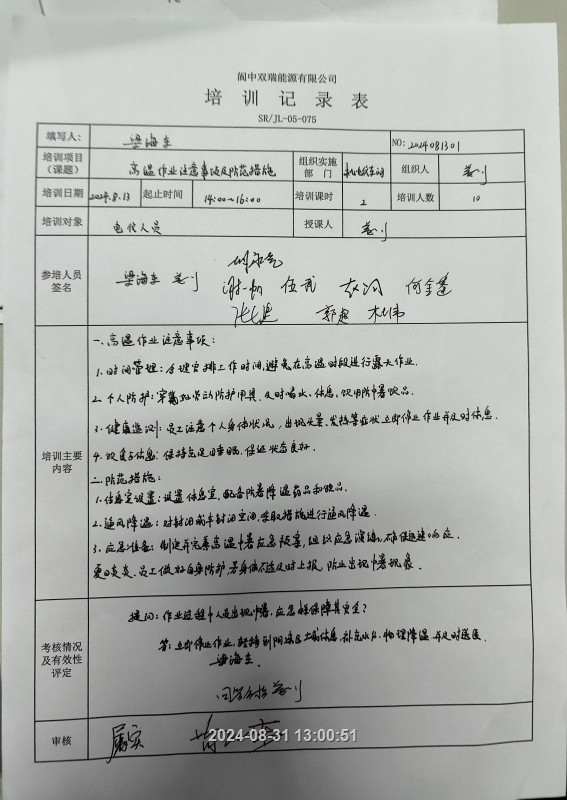 阆中双瑞能源有限公司
培训记录表
SR/JL-05-075
填写人： 梁海生 NO: 2024081301
培训项目（课题） 高温作业注意事项及防范措施 组织实施部门 机电仪车间 组织人
培训日期 2024.8.13 起止时间 14:00~16:00 培训课时 2 培训人数 10
培训对象 电仪人员 授课人
参培人员签名
梁海生 谢一帆 伍武 何金蓬
郭超 杜伟
培训主要内容
一.高温作业注意事项：
1.时间管理：合理安排工作时间,避免在高温时段进行露天作业.
2.个人防护：穿戴好劳动防护用具,及时喝水、休息,饮用防中暑饮品.
3.健康监测：员工注意个人身体状况,出现头晕、发热等症状立即停业作业并及时休息.
4.饮食与休息：保持充足睡眠,保证状态良好.
二.防范措施：
1.休息室设置：设置休息室,配备防暑降温药品和饮品.
2.通风降温：对封闭或半封闭空间,采取措施进行通风降温.
3.应急准备：制定并完善高温中暑应急预案,组织应急演练,确保迅速响应.
夏日炎炎,员工做好自身防护,若身体不适及时上报,防止出现中暑现象.
考核情况及有效性评定
提问：作业过程中人员出现中暑,应怎样保障其安全?
答：立即停止作业,转移到阴凉区域休息,补充水分,物理降温并及时送医.
梁海生.
回答合格
审核 属实
2024-08-31 13:00:51